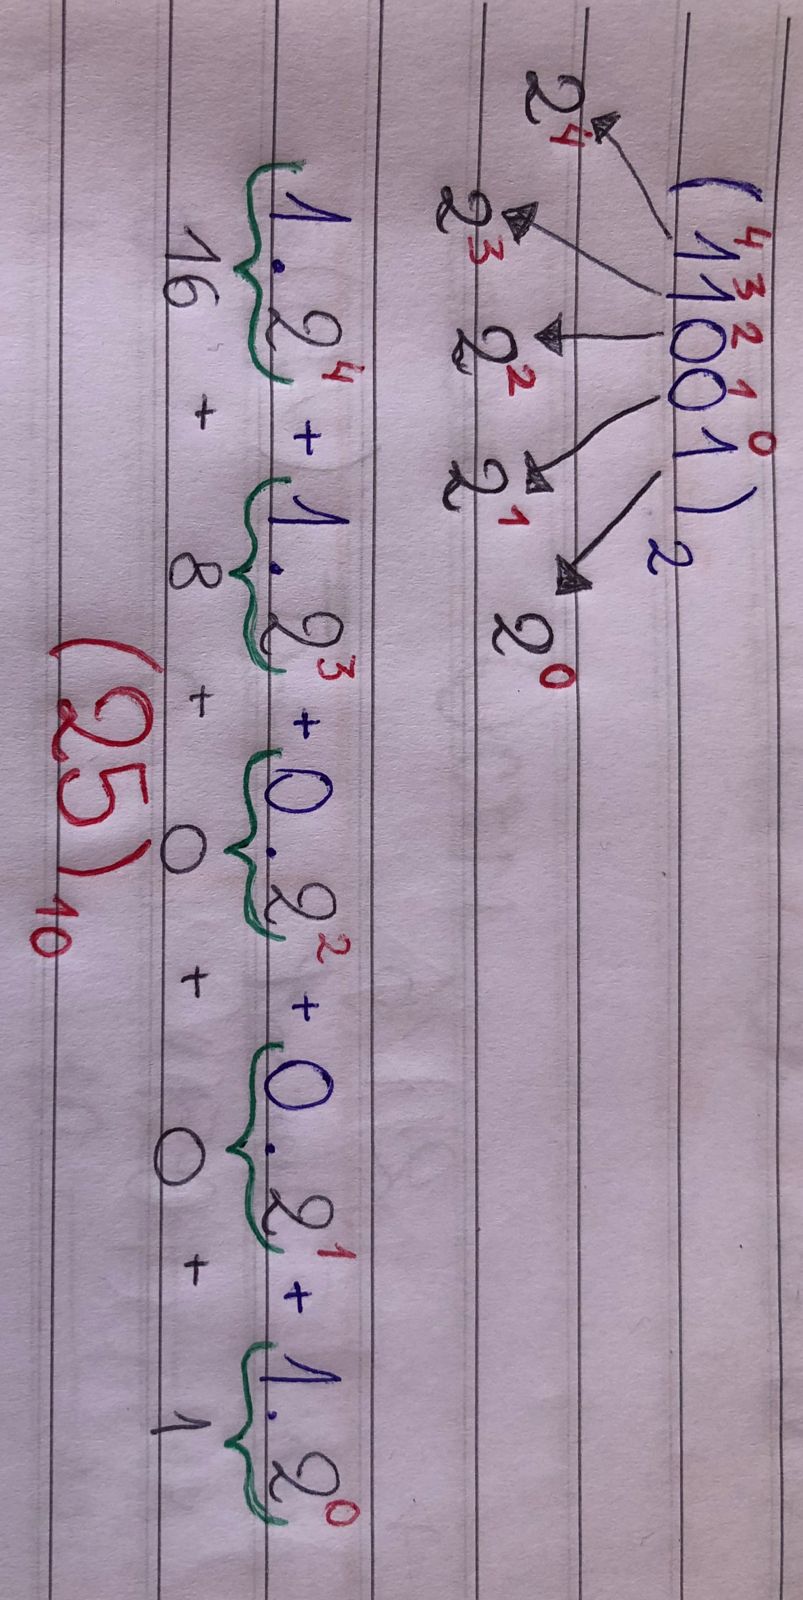 4 3 2 1 0
(11001)₂
2⁴ 2³ 2² 2¹ 2⁰
1.2⁴ + 1.2³ + 0.2² + 0.2¹ + 1.2⁰
16 + 8 + 0 + 0 + 1
(25)₁₀